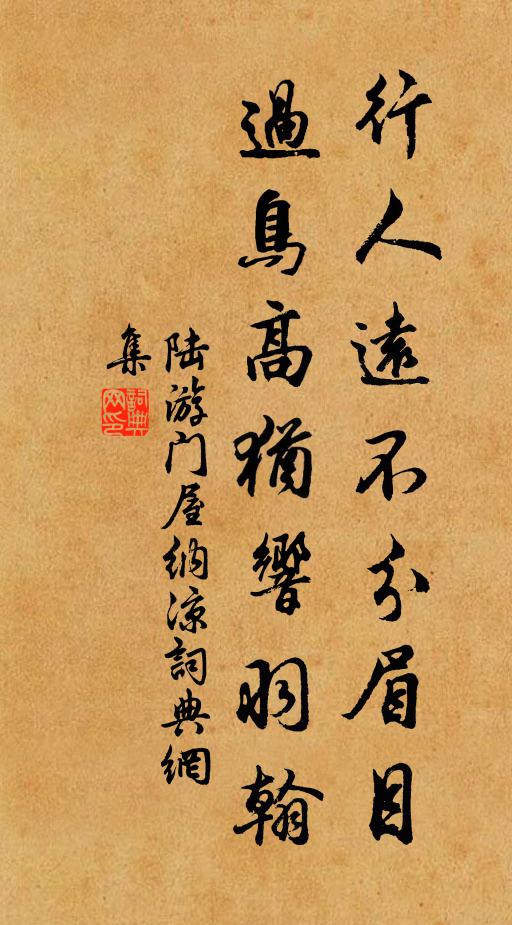 行人遠不分眉目
過鳥高猶響羽翰
陸游门屋納凉詞典網
集
詞典
网印